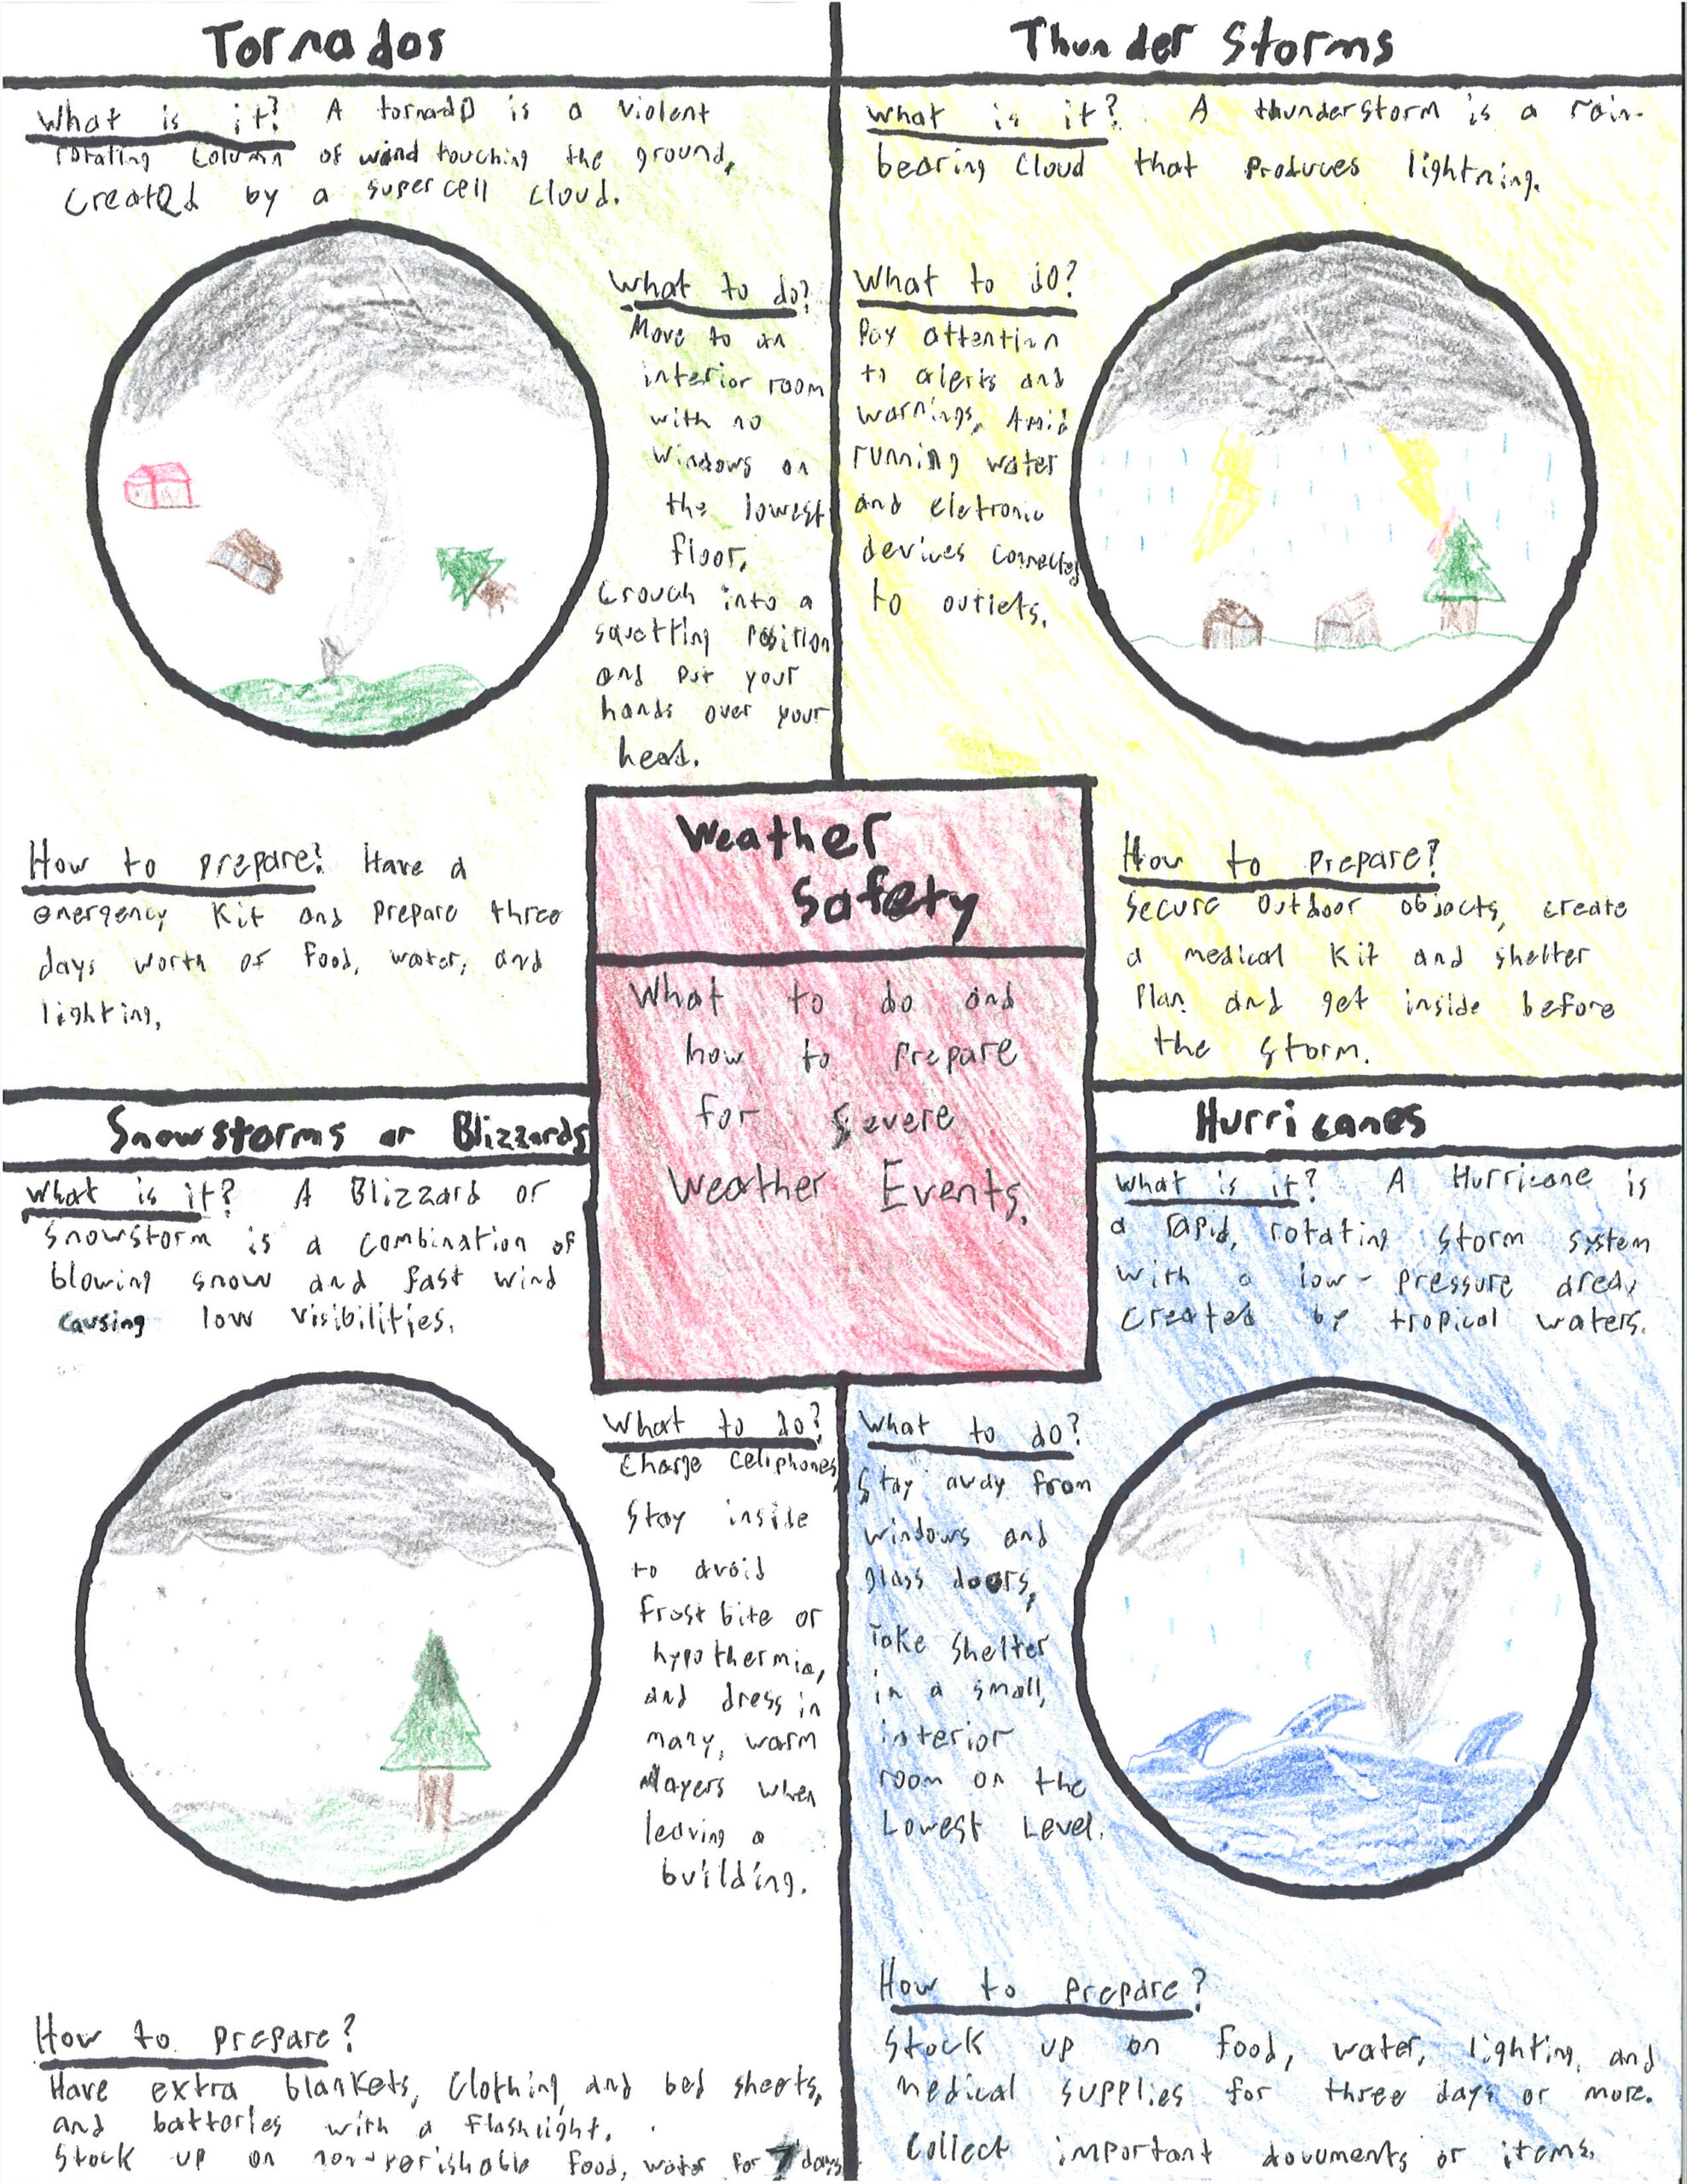 Tornados
What is it? A tornado is a violent
rotating column of wind touching the ground,
created by a supercell cloud.
What to do?
Move to an
interior room
with no
windows on
the lowest
floor,
crouch into a
squatting position
and put your
hands over your
head.
How to prepare? Have a
emergency kit and prepare three
days worth of food, water, and
lighting,
Thunder Storms
What is it? A thunderstorm is a rain-
bearing cloud that produces lightning.
What to do?
Pay attention
to alerts and
warnings, Avoid
running water
and eletronic
devices connected
to outlets.
How to prepare?
Secure outdoor objects, create
a medical kit and shelter
plan and get inside before
the storm.
Weather
Safety
What to do and
how to prepare
for Severe
Weather Events.
Snowstorms or Blizzards
What is it? A Blizzard or
snowstorm is a combination of
blowing snow and fast wind
causing low visibilities.
What to do?
Charge cellphones,
Stay inside
to avoid
frost bite or
hypothermia,
and dress in
many, warm
layers when
leaving a
building.
How to prepare?
Have extra blankets, clothing and bed sheets,
and batteries with a flashlight.
Stock up on non-perishable food, water for 7 days
Hurricanes
What is it? A Hurricane is
a rapid, rotating storm system
with a low-pressure area,
created by tropical waters.
What to do?
Stay away from
windows and
glass doors,
Take shelter
in a small,
interior
room on the
Lowest Level.
How to prepare?
Stock up on food, water, lighting, and
medical supplies for three days or more.
Collect important documents or items.